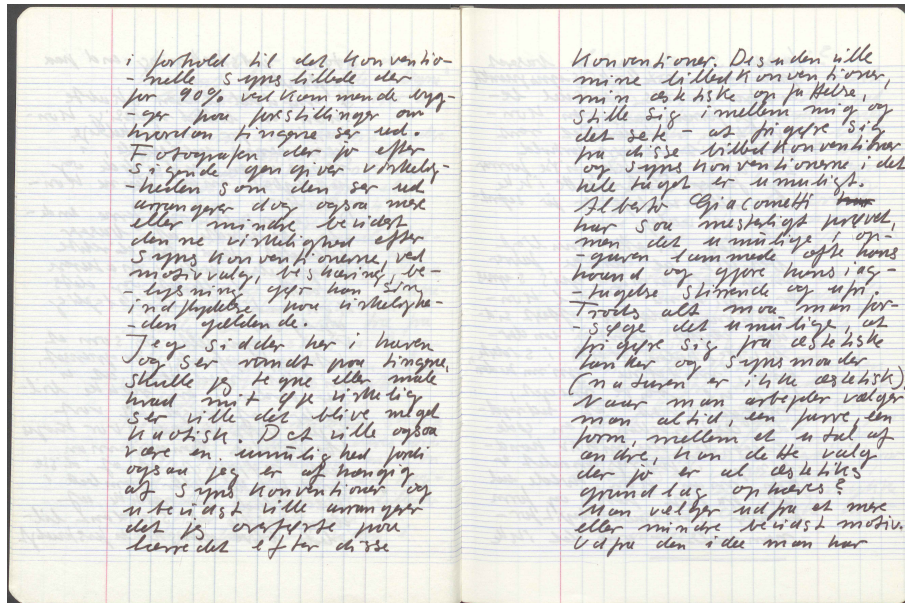 i forhold til det Konventio-
-nelle synsbillede der
for 90% vedkommende byg-
-ger paa forestillinger om
hvordan tingene ser ud.
Fotografen der jo efter
sigende gengiver virkelig-
-heden som den ser ud
arrangerer dog ogsaa mere
eller mindre bevidst
denne virkelighed efter
synskonventionerne, ved
motivvalg, beskæring, be-
-lysning gør han sin
indflydelse paa virkelighe-
-den gældende.
Jeg sidder her i haven
og ser rundt paa tingene,
skulle jeg tegne eller male
hvad mit øje virkelig
ser ville det blive meget
kaotisk. Det ville ogsaa
være en umulighed fordi
ogsaa jeg er afhængig
af synskonventioner og
ubevidst ville arrangere
det jeg overførte paa
lærredet efter disse
Konventioner. Desuden ville
mine billedkonventioner,
min æstetiske opfattelse,
stille sig imellem mig og
det sete - at frigøre sig
fra disse billedkonventioner
og synskonventionerne i det
hele taget er umuligt.
Alberto Giacometti
har saa mesterligt prøvet,
men det umulige i op-
-gaven lammede ofte hans
haand og gjore hans iag-
-tagelse stirrende og ufri.
Trods alt maa man for-
-søge det umulige, at
frigøre sig fra æstetiske
tanker og synsmaader
(naturen er ikke æstetisk).
Naar man arbejder vælger
man altid, een farve, een
form, mellem et utal af
andre, kan dette valg
der jo er al æstetiks
grundlag ophæves?
Man vælger udfra et mere
eller mindre bevidst motiv.
Udfra den idee man har